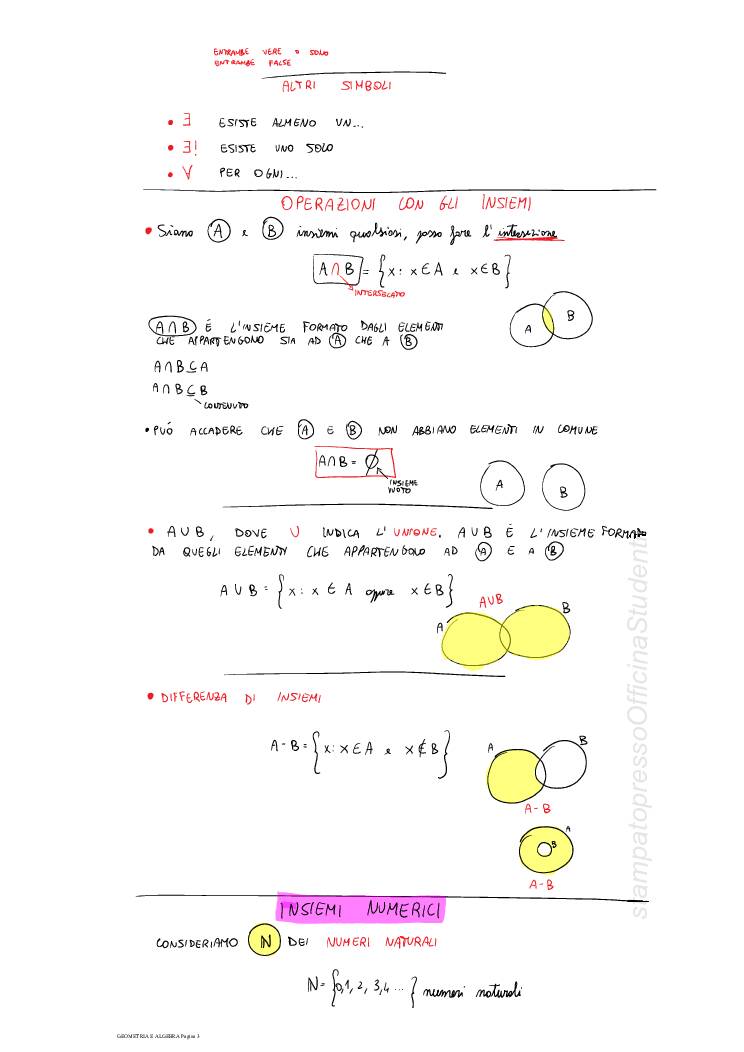 ENTRAMBE VERE O SOLO
ENTRAMBE FALSE
ALTRI SIMBOLI
• ∃ ESISTE ALMENO UN...
• ∃! ESISTE UNO SOLO
• ∀ PER OGNI...
OPERAZIONI CON GLI INSIEMI
• Siano A e B insiemi qualsiasi, posso fare l'intersezione
A∩B = {x : x ∈ A e x ∈ B}
INTERSECATO
A B
A∩B É L'INSIEME FORMATO DAGLI ELEMENTI
CHE APPARTENGONO SIA AD A CHE A B
A∩B ⊆ A
A∩B ⊆ B
CONTENUTO
• PUÓ ACCADERE CHE A E B NON ABBIANO ELEMENTI IN COMUNE
A∩B = ∅
INSIEME
VUOTO
A B
• A∪B, DOVE U INDICA L'UNIONE. A∪B É L'INSIEME FORMATO
DA QUEGLI ELEMENTI CHE APPARTENGONO AD A E A B
A∪B = {x : x ∈ A oppure x ∈ B}
A A∪B B
• DIFFERENZA DI INSIEMI
A-B = {x : x ∈ A e x ∉ B}
A B
A-B
A
B
A-B
INSIEMI NUMERICI
CONSIDERIAMO ℕ DEI NUMERI NATURALI
ℕ = {0,1, 2, 3,4 ...} numeri naturali
stampatopressoOfficinaStudenti
GEOMETRIA E ALGEBRA Pagina 3